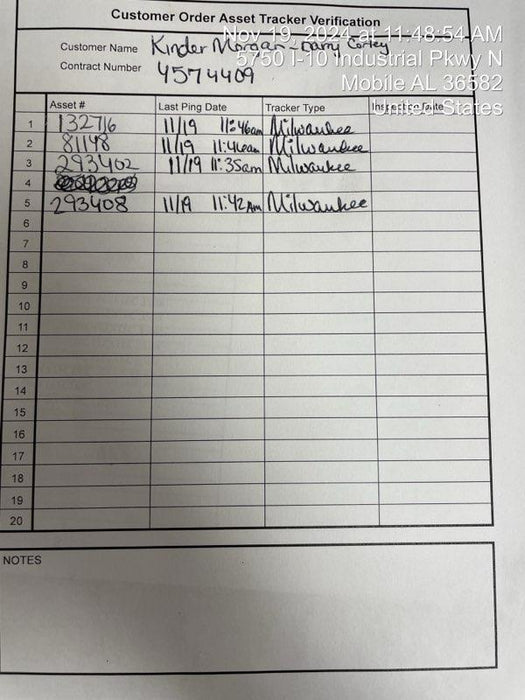 Customer Order Asset Tracker Verification
Nov 19, 2024 at 11:48:54 AM
Customer Name Kinder Morgan - Danny Corley
5750 I-10 Industrial Pkwy N
Contract Number 4574409
Mobile AL 36582
United States
Asset # Last Ping Date Tracker Type Inspection Date
1 132716 11/19 11:46am Milwaukee
2 81148 11/19 11:46am Milwaukee
3 293402 11/19 11:35am Milwaukee
4
5 293408 11/19 11:42Am Milwaukee
6
7
8
9
10
11
12
13
14
15
16
17
18
19
20
NOTES